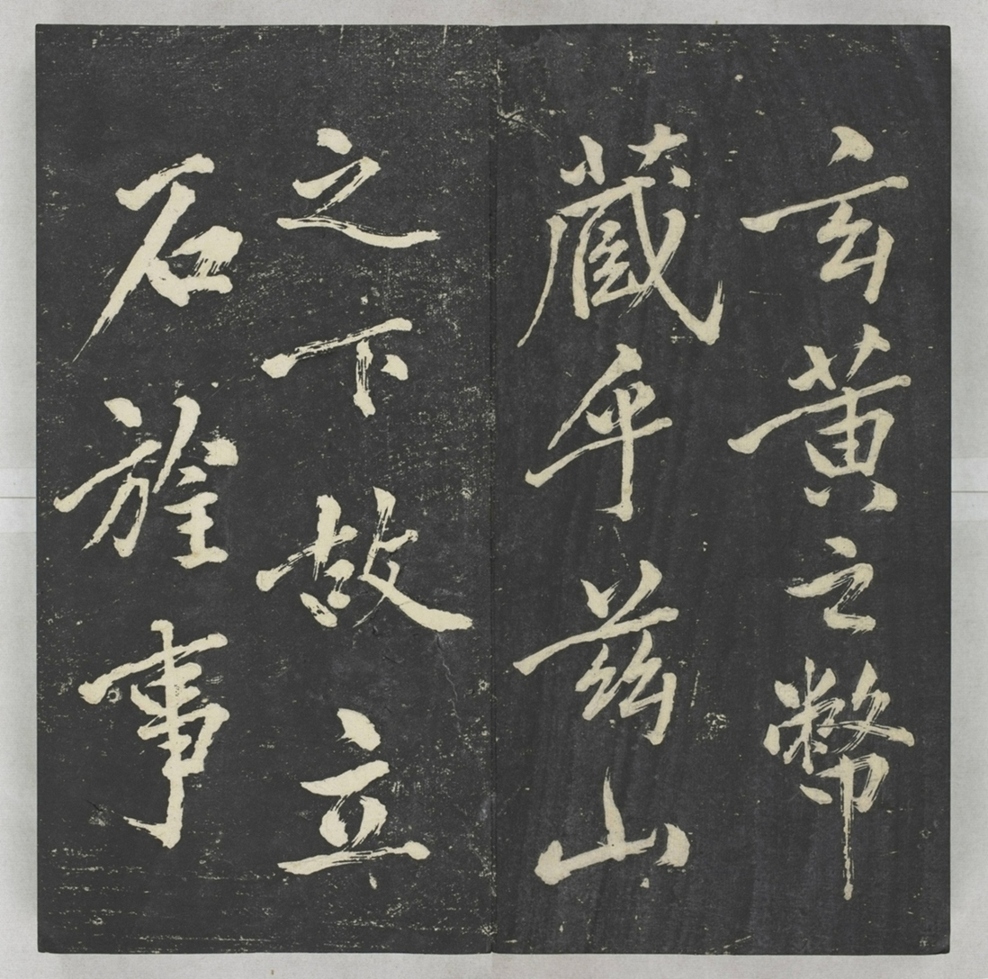 玄黄之幣
藏乎茲山
之下故立
石旌事